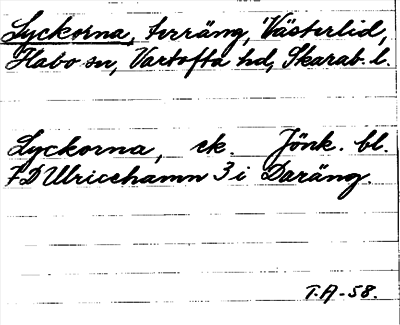 Lyckorna, terräng, Västerlid,
Habo sn, Vartofta hd, Skarab. l.
Lyckorna, ek. Jönk. bl.
7 D Ulricehamn 3 i Daräng.
T.A-58.